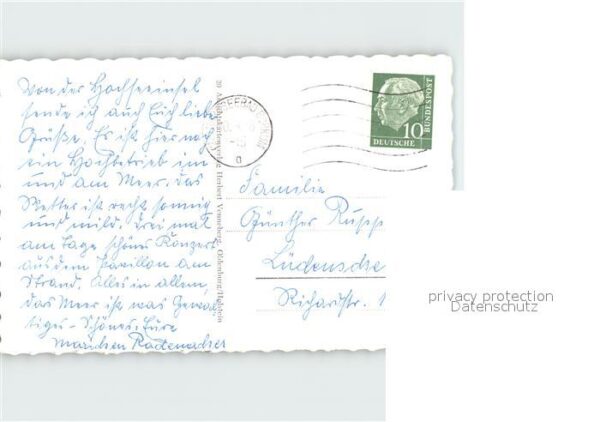 Von der Hochseeinsel
sende ich auch Euch liebe
Grüße. Es ist hier noch
ein Hochbetrieb im
und am Meer. Das
Wetter ist recht sonnig
und mild. Drei mal
am Tage schönes Konzert
aus dem Pavillon am
Strand. Alles in allem,
das Meer ist was Gewal-
tiges - Schönes. Eure
39 Ansichtskartenverlag Herbert Venneberg, Oldenburg/Holstein
10
DEUTSCHE
BUNDESPOST
Familie
Günther
Lüdensche
Richardstr. 1
privacy protection
Datenschutz